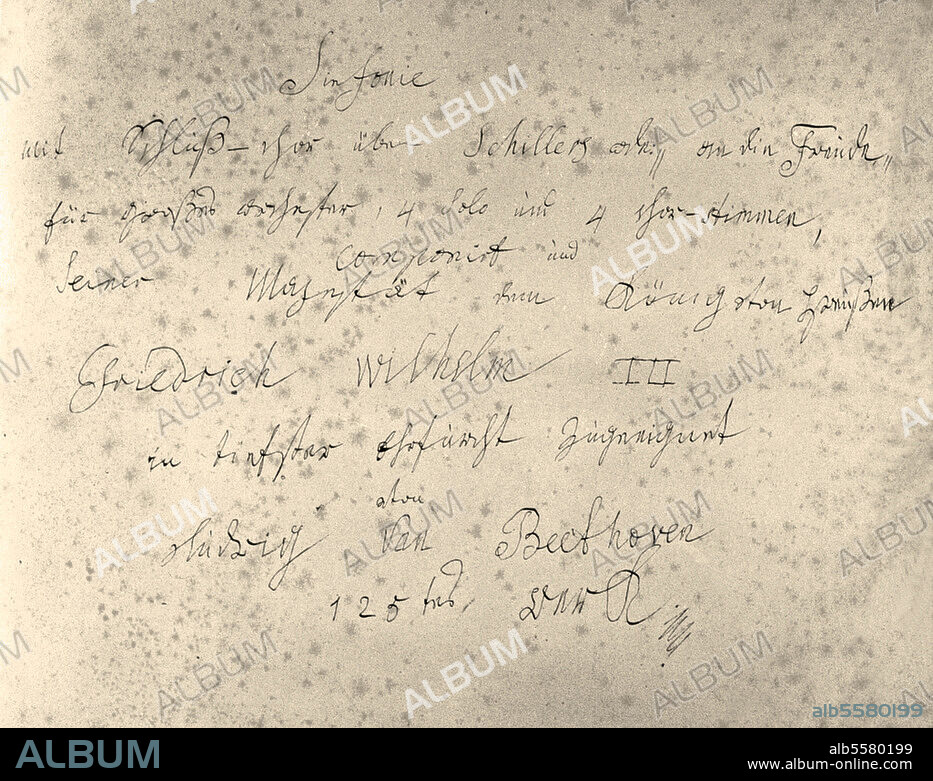 Sinfonie
mit Schluß-chor über Schillers ode: „an die Freude„
für großes orchester, 4 Solo und 4 chor-stimmen,
componirt und
Seiner Majestät dem König von Preußen
Friedrich Wilhelm III
in tiefster Ehrfurcht zugeeignet
von
Ludwig van Beethoven
125tes Werk
alb5580199
ALBUM
alb5580199
www.album-online.com